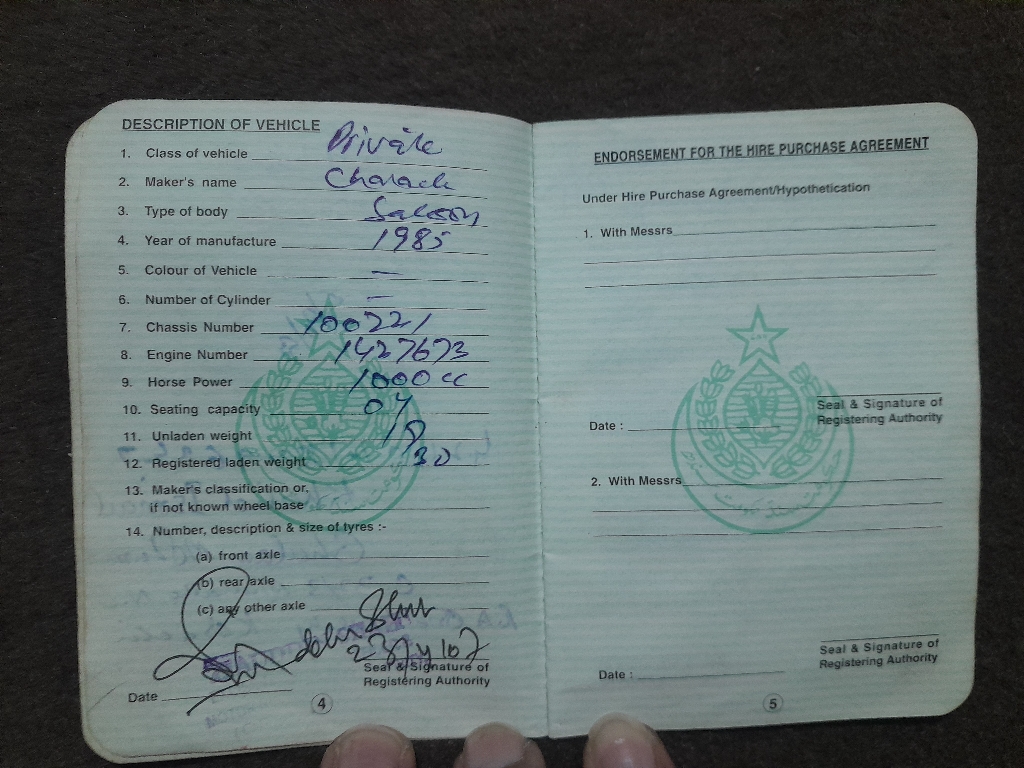 DESCRIPTION OF VEHICLE
1. Class of vehicle Private
2. Maker's name Charade
3. Type of body Saloon
4. Year of manufacture 1985
5. Colour of Vehicle —
6. Number of Cylinder —
7. Chassis Number 100221
8. Engine Number 1427673
9. Horse Power 1000 cc
10. Seating capacity 04
11. Unladen weight
12. Registered laden weight 30
13. Maker's classification or,
if not known wheel base
14. Number, description & size of tyres :-
(a) front axle
(b) rear axle
(c) any other axle
Seal & Signature of
Registering Authority
Date
4
ENDORSEMENT FOR THE HIRE PURCHASE AGREEMENT
Under Hire Purchase Agreement/Hypothetication
1. With Messrs
Seal & Signature of
Registering Authority
Date :
2. With Messrs
Seal & Signature of
Registering Authority
Date :
5